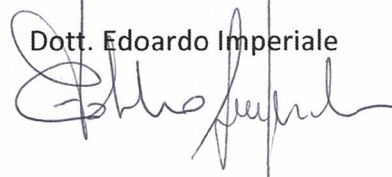 Dott. Edoardo Imperiale